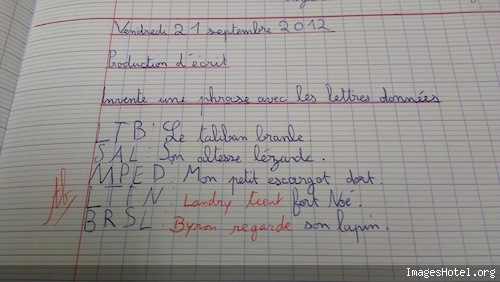 Vendredi 21 septembre 2012
Production d'écrit
Invente une phrase avec les lettres données
LTB : Le taliban branle.
SAL : Son altesse lézarde.
MPED : Mon petit escargot dort.
LTFN : Landry tient fort Noé.
BRSL : Byron regarde son lapin.
ImagesHotel.org